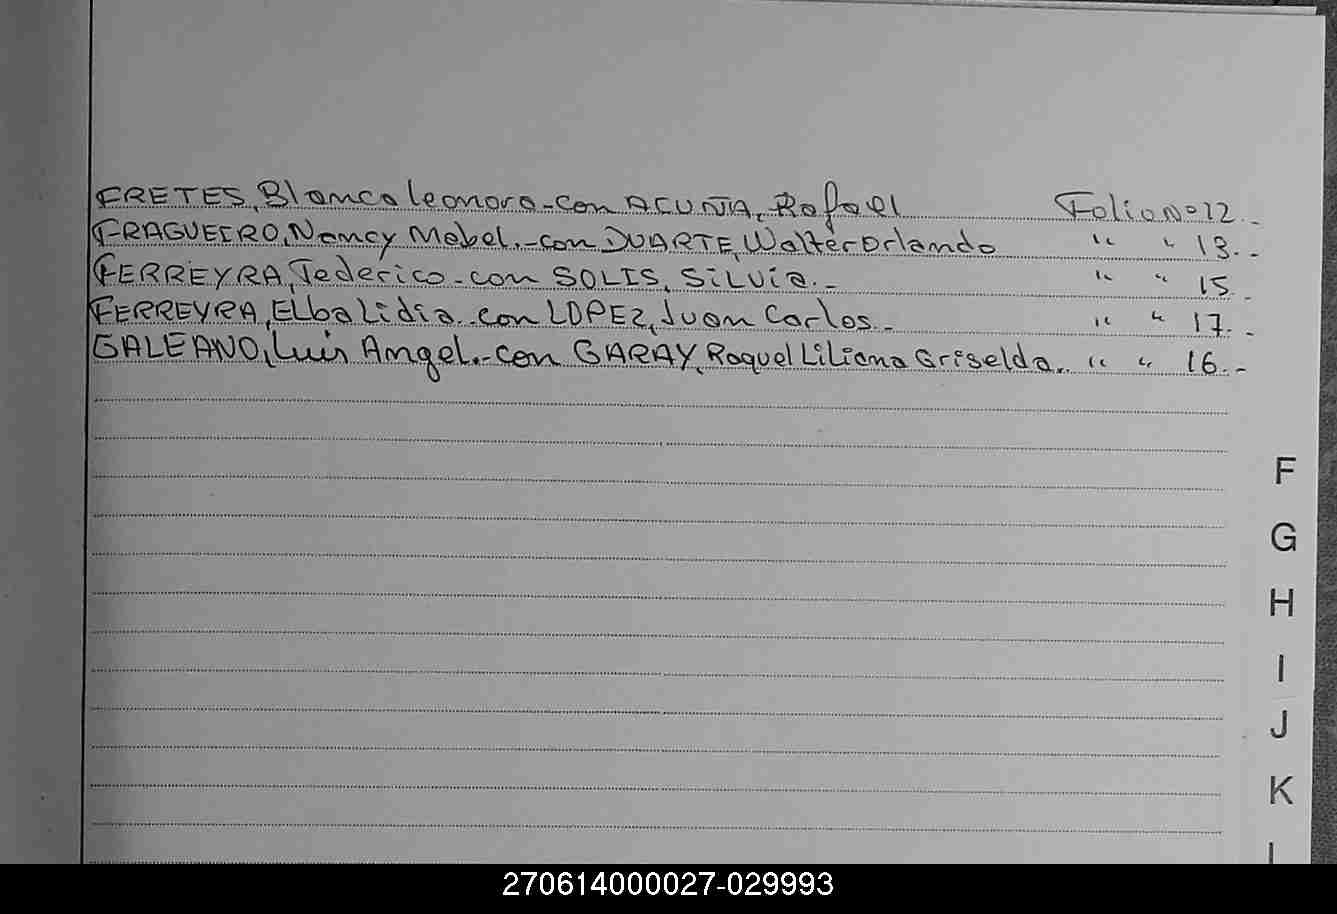 FRETES, Blanca leonora - con ACUÑA, Rafael Folio Nº 12.-
FRAGUEIRO, Nancy Mabel.- con DUARTE, Walter Orlando " " 13.-
FERREYRA, Federico - con SOLIS, SiLVia.- " " 15.-
FERREYRA, ELba Lidia con LOPEZ, Juan Carlos.- " " 17.-
GALEANO, Luis Angel.- con GARAY, Raquel Liliana Griselda. " " 16.-
F
G
H
I
J
K
L
270614000027-029993